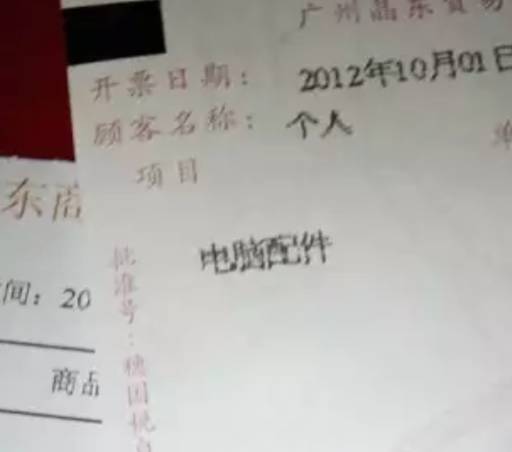 广州晶东贸易
开票日期: 2012年10月01日
顾客名称: 个人
项目
电脑配件
批准号:穗国税
东店
间: 20
商品